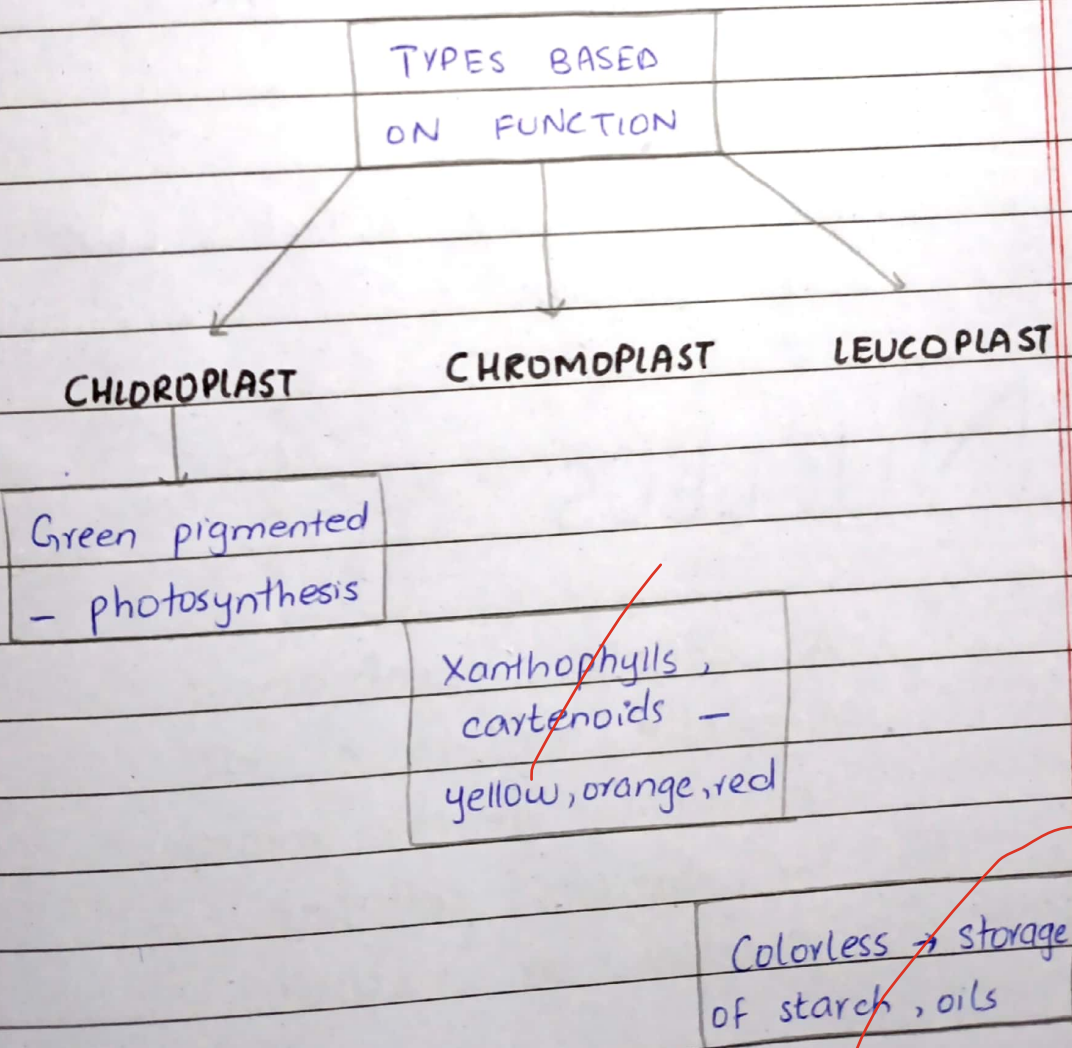 TYPES BASED
ON FUNCTION
CHLOROPLAST
CHROMOPLAST
LEUCOPLAST
Green pigmented
– photosynthesis
Xanthophylls,
cartenoids –
yellow, orange, red
Colorless → storage
of starch, oils